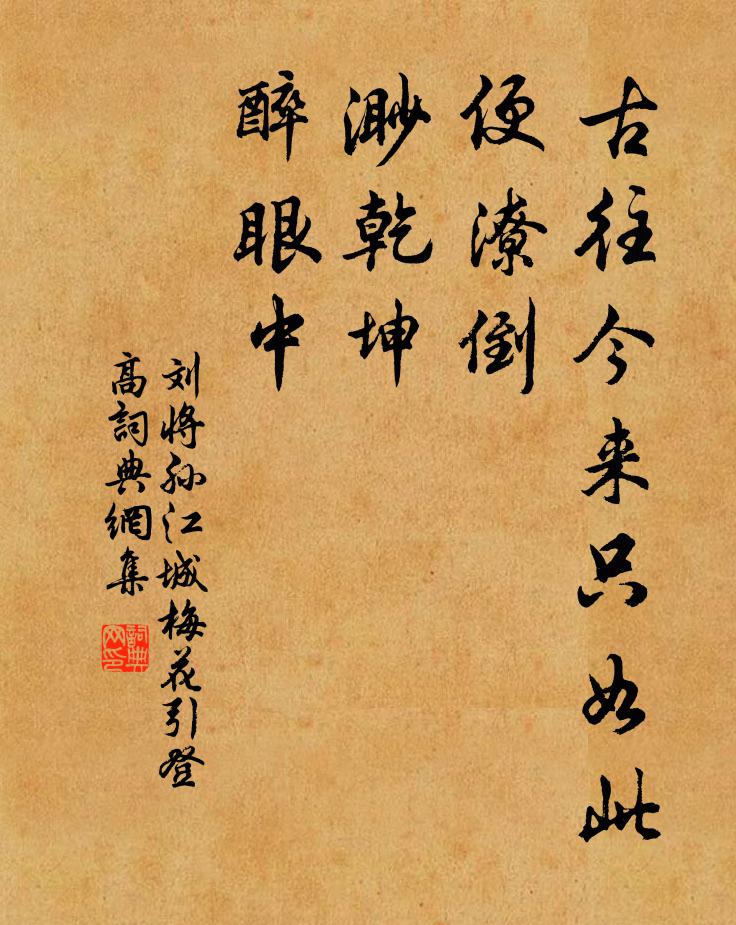 古往今来只如此
便潦倒
渺乾坤
醉眼中
刘将孙江城梅花引登
高詞典網集
詞典
网印